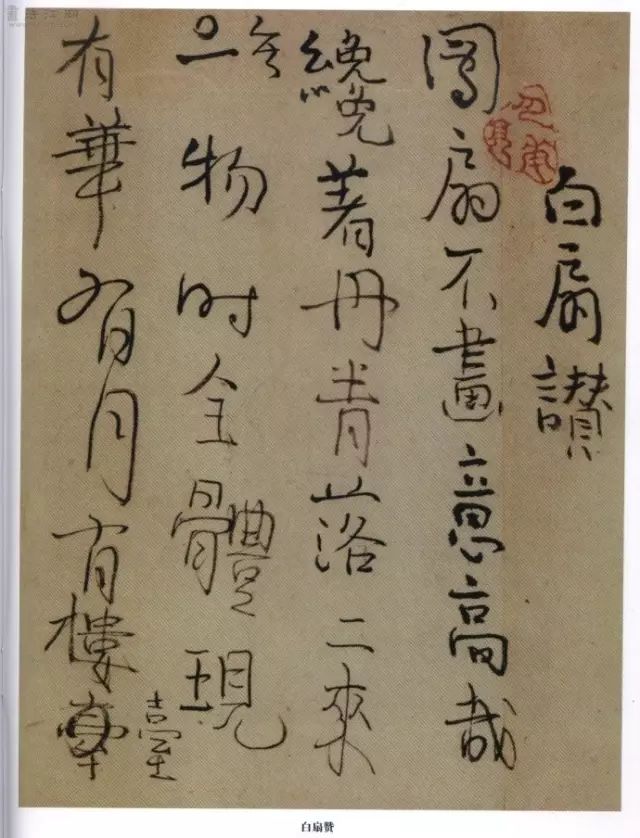 白扇讚
團扇不畫意高哉
纔著丹青落二來
无一物时全體現
有華有月有樓臺
白扇赞